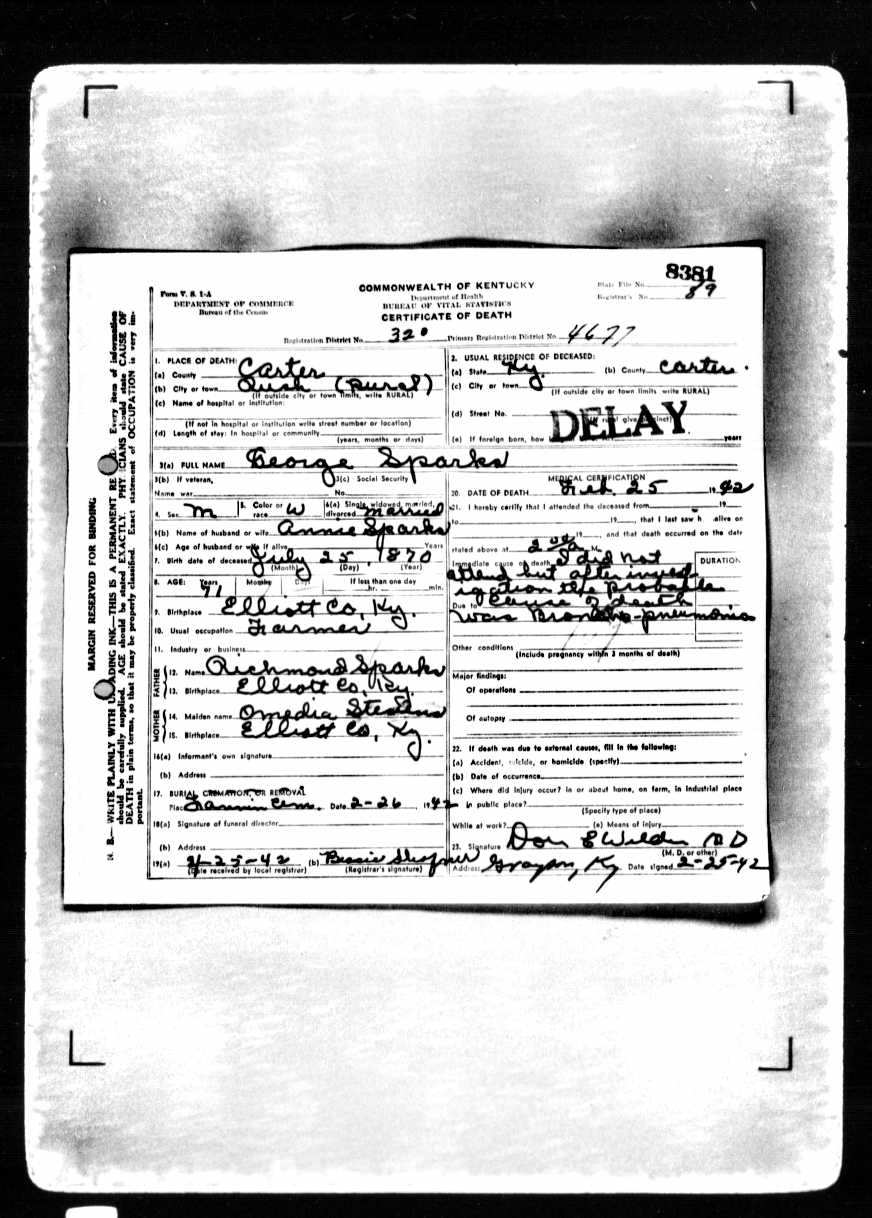 8381
Form V. S. 1-A
COMMONWEALTH OF KENTUCKY
State File No.
DEPARTMENT OF COMMERCE
Department of Health
Registrar's No. 89
Bureau of the Census
BUREAU OF VITAL STATISTICS
CERTIFICATE OF DEATH
Registration District No. 320 Primary Registration District No. 4677
1. PLACE OF DEATH:
(a) County Carter
(b) City or town Rush (Rural)
(If outside city or town limits, write RURAL)
(c) Name of hospital or institution:
(If not in hospital or institution write street number or location)
(d) Length of stay: In hospital or community
(years, months or days)
2. USUAL RESIDENCE OF DECEASED:
(a) State Ky. (b) County Carter.
(c) City or town
(If outside city or town limits write RURAL)
(d) Street No.
DELAY
(e) If foreign born, how years
3(a) FULL NAME George Sparks
3(b) If veteran, 3(c) Social Security
Name war No.
4. Sex M 5. Color or race W 6(a) Single, widowed, married, divorced married
6(b) Name of husband or wife Annie Sparks
6(c) Age of husband or wife if alive Years
7. Birth date of deceased July 25, 1870
(Month) (Day) (Year)
8. AGE: Years Months Days If less than one day
71 hr. min.
9. Birthplace Elliott Co, Ky.
10. Usual occupation Farmer
11. Industry or business
FATHER
12. Name Richmond Sparks
13. Birthplace Elliott Co, Ky.
MOTHER
14. Maiden name Omedia
15. Birthplace Elliott Co, Ky.
16(a) Informant's own signature
(b) Address
17. BURIAL, CREMATION, OR REMOVAL
Place Cem. Date 2-26, 1942
18(a) Signature of funeral director
(b) Address
19(a) 2-25-42 (b) Bessie
(Date received by local registrar) (Registrar's signature)
MEDICAL CERTIFICATION
20. DATE OF DEATH Feb. 25 1942
21. I hereby certify that I attended the deceased from 19
to 19, that I last saw h alive on
19, and that death occurred on the date
stated above at 2 M.
Immediate cause of death I did not
DURATION
attend but after invest-
igation the probable
Due to cause of death
was Broncho-pneumonia
Other conditions
(Include pregnancy within 3 months of death)
Major findings:
Of operations
Of autopsy
22. If death was due to external causes, fill in the following:
(a) Accident, suicide, or homicide (specify)
(b) Date of occurrence
(c) Where did injury occur? in or about home, on farm, in industrial place
in public place?
(Specify type of place)
While at work? (e) Means of injury
23. Signature Don E Wilder M D
(M. D. or other)
Address Grayson, Ky Date signed 2-25-42
MARGIN RESERVED FOR BINDING
N. B.—WRITE PLAINLY WITH UNFADING INK—THIS IS A PERMANENT RE D. Every item of information
should be carefully supplied. AGE should be stated EXACTLY. PHYSICIANS should state CAUSE OF
DEATH in plain terms, so that it may be properly classified. Exact statement of OCCUPATION is very im-
portant.